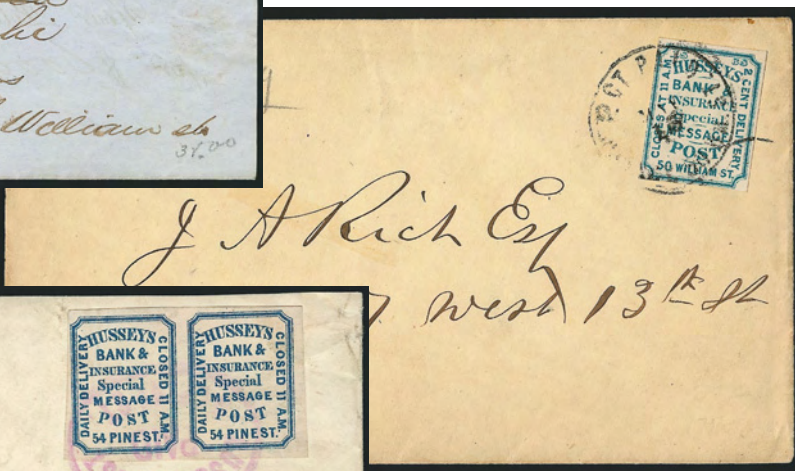 William st
37.00
HUSSEYS
BANK &
INSURANCE
Special
MESSAGE
POST
50 WILLIAM ST.
CLOSES AT 11 A.M.
2 CENT DELIVERY
J A Rich Esq
West 13th St
HUSSEYS
BANK &
INSURANCE
Special
MESSAGE
POST
54 PINE ST.
DAILY DELIVERY
CLOSED 11 A.M.
HUSSEYS
BANK &
INSURANCE
Special
MESSAGE
POST
54 PINE ST.
DAILY DELIVERY
CLOSED 11 A.M.